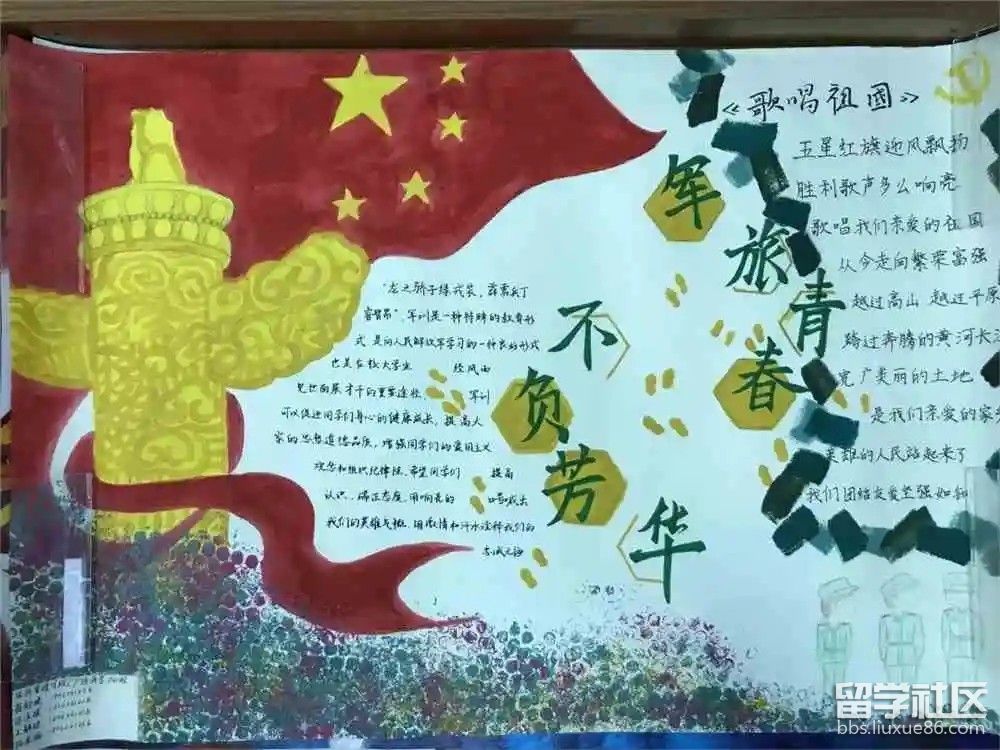 军旅青春
不负芳华
《歌唱祖國》
五星红旗迎风飘扬
胜利歌声多么响亮
歌唱我们亲爱的祖国
从今走向繁荣富强
越过高山 越过平原
跨过奔腾的黄河长江
宽广美丽的土地
是我们亲爱的家乡
英雄的人民站起来了
我们团结友爱坚强如
"龙之骄子练戎装，
军训是一种特殊的教育形
式 是向人民解放军学习的一种良好形式
也是在校大学生 经风雨
见世面展才干的重要途径。 军训
可以促进同学们身心的健康成长，提高大
家的思想道德品质，增强同学们的爱国主义
观念和组织纪律性。希望同学们 提高
认识、端正态度，用响亮的
我们的英雄气概，用激情和汗水诠释我们的
留学社区
bbs.liuxue86.com